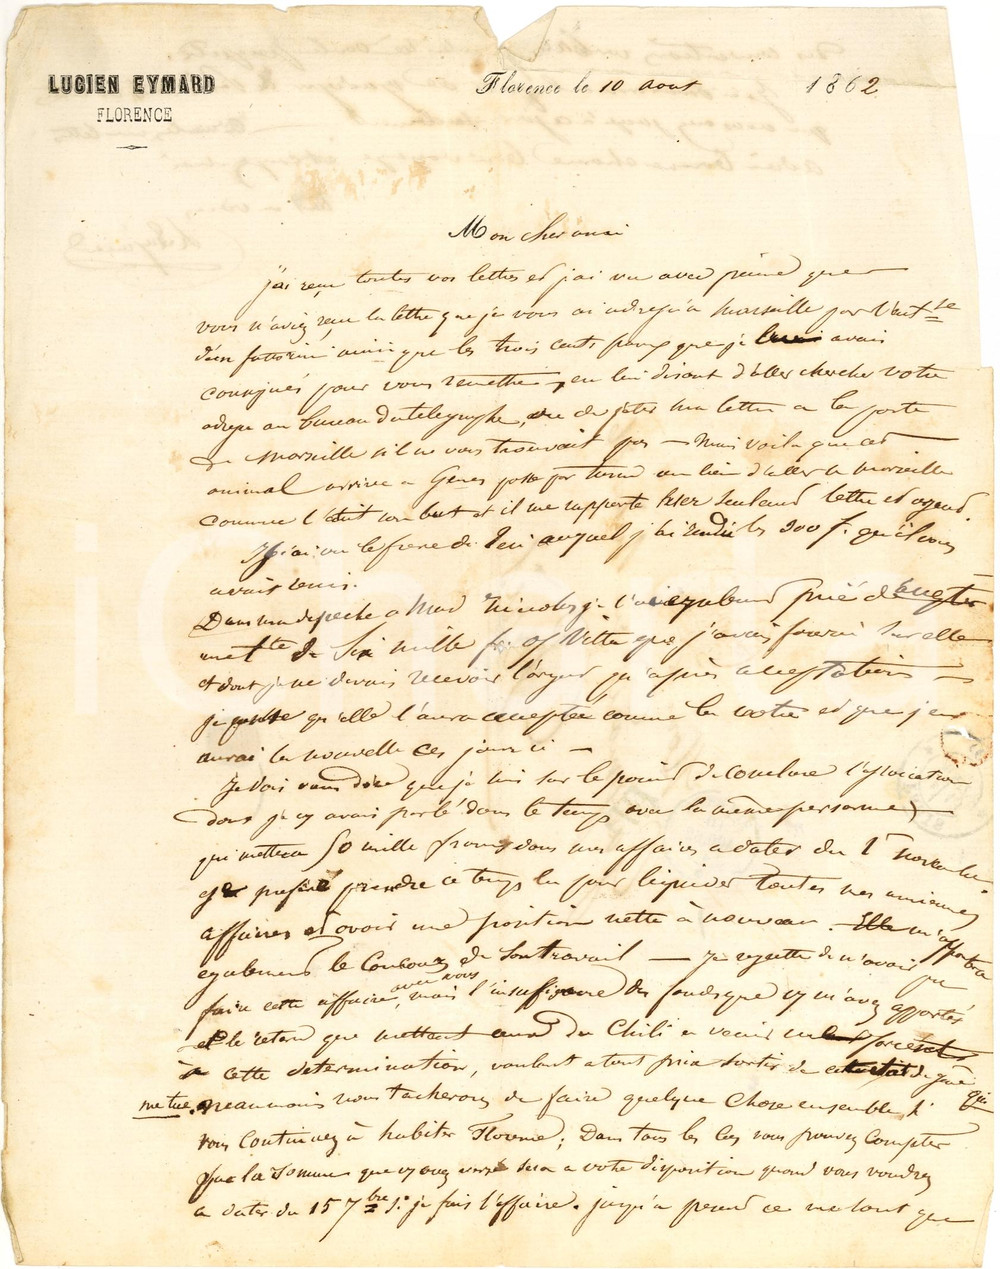 LUCIEN EYMARD
FLORENCE
Florence le 10 aout 1862
Mon cher ami
j'ai reçu toutes vos lettres et j'ai vu avec peine que
vous n'aviez reçu la lettre que je vous ai adressé a Marseille par l'ent-se
d'un fattorini ainsi que les trois cents francs que je lui avais
consignés pour vous remettre, en lui disant d'aller chercher votre
adresse au bureau du telegraphe, de jeter ma lettre a la poste
de Marseille s'il ne vous trouvait pas — Mais voila que cet
animal arrive a Gênes passe par Turin au lieu d'aller a Marseille
comme l'était son but et il me rapporte hier seulement lettre et argent.
J'ai vu le frere de auquel j'ai rendu les 300 f. qu'il vous
avait remis.
Dans ma depeche a Mad je l'ai egalement prié d'
de Six mille fr. of Vitta que j'avais fourni sur elle
et dont je ne devais recevoir l'argent qu'après acceptation —
je pense qu'elle l'aura acceptée comme la votre et que j'en
aurai la nouvelle ces jours ci —
Je vais vous dire que je suis sur le point de conclure l'association
dont je vous avais parlé dans le temps avec la même personne,
qui mettra 50 mille francs dans mes affaires a dater du 1er Novembre.
prendre ce temps la pour liquider toutes mes anciennes
affaires et avoir une position nette à nouveau. Elle m'apportera
egalement le Concours de son travail — Je regrette de n'avoir pu
faire cette affaire avec vous, mais l'insuffisance des fonds que vous m'avez apportés
et le retard que mettent ceux du Chili a venir m'
à cette determination, voulant a tout prix sortir de cet etat de gêne qui
me tue. neanmoins nous tacherons de faire quelque chose ensemble si
vous continuez à habiter Florence; Dans tous les cas vous pouvez compter
que la somme que vous avez versé sera a votre disposition quand vous voudrez
a dater du 15 7bre si je fais l'affaire. jusqu'a present ce n'est que